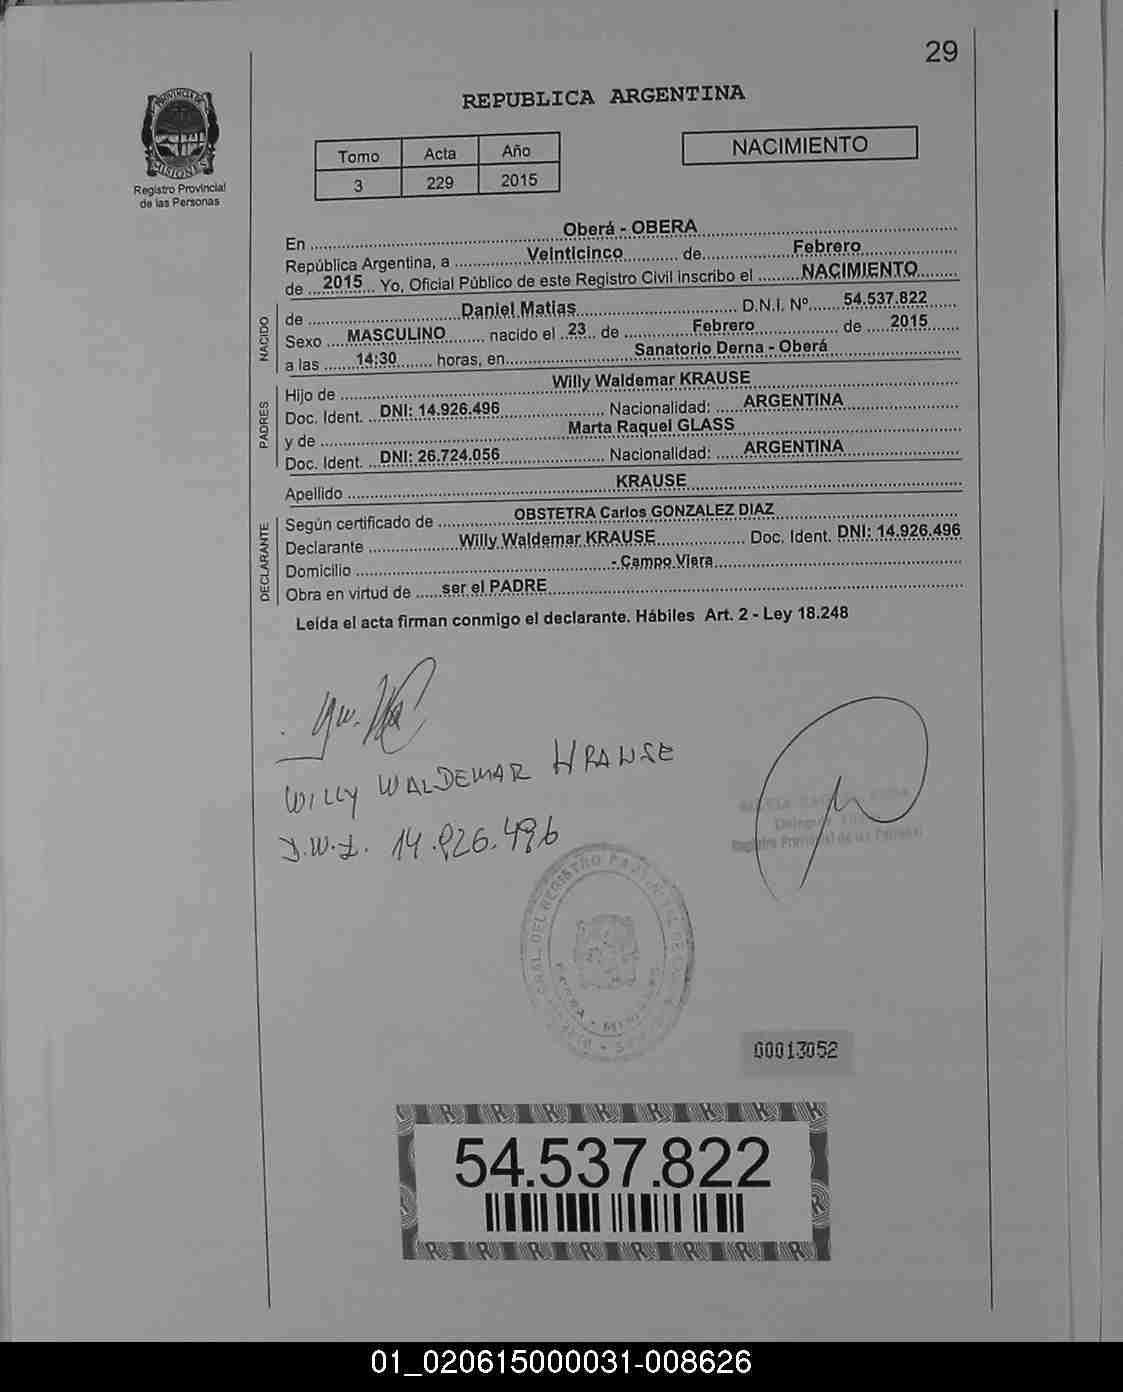 29
PROVINCIA DE
MISIONES
Registro Provincial
de las Personas
REPUBLICA ARGENTINA
Tomo Acta Año
3 229 2015
NACIMIENTO
En Oberá - OBERA
República Argentina, a Veinticinco de Febrero
de 2015 Yo, Oficial Público de este Registro Civil inscribo el NACIMIENTO
NACIDO
de Daniel Matias D.N.I. Nº 54.537.822
Sexo MASCULINO nacido el 23 de Febrero de 2015
a las 14:30 horas, en Sanatorio Derna - Oberá
PADRES
Hijo de Willy Waldemar KRAUSE
Doc. Ident. DNI: 14.926.496 Nacionalidad: ARGENTINA
y de Marta Raquel GLASS
Doc. Ident. DNI: 26.724.056 Nacionalidad: ARGENTINA
Apellido KRAUSE
DECLARANTE
Según certificado de OBSTETRA Carlos GONZALEZ DIAZ
Declarante Willy Waldemar KRAUSE Doc. Ident. DNI: 14.926.496
Domicilio - Campo Viera
Obra en virtud de ser el PADRE
Leída el acta firman conmigo el declarante. Hábiles Art. 2 - Ley 18.248
WILLY WALDEMAR KRAUSE
D.N.I. 14.926.496
Registro Provincial de las Personas
00013052
54.537.822
01_020615000031-008626